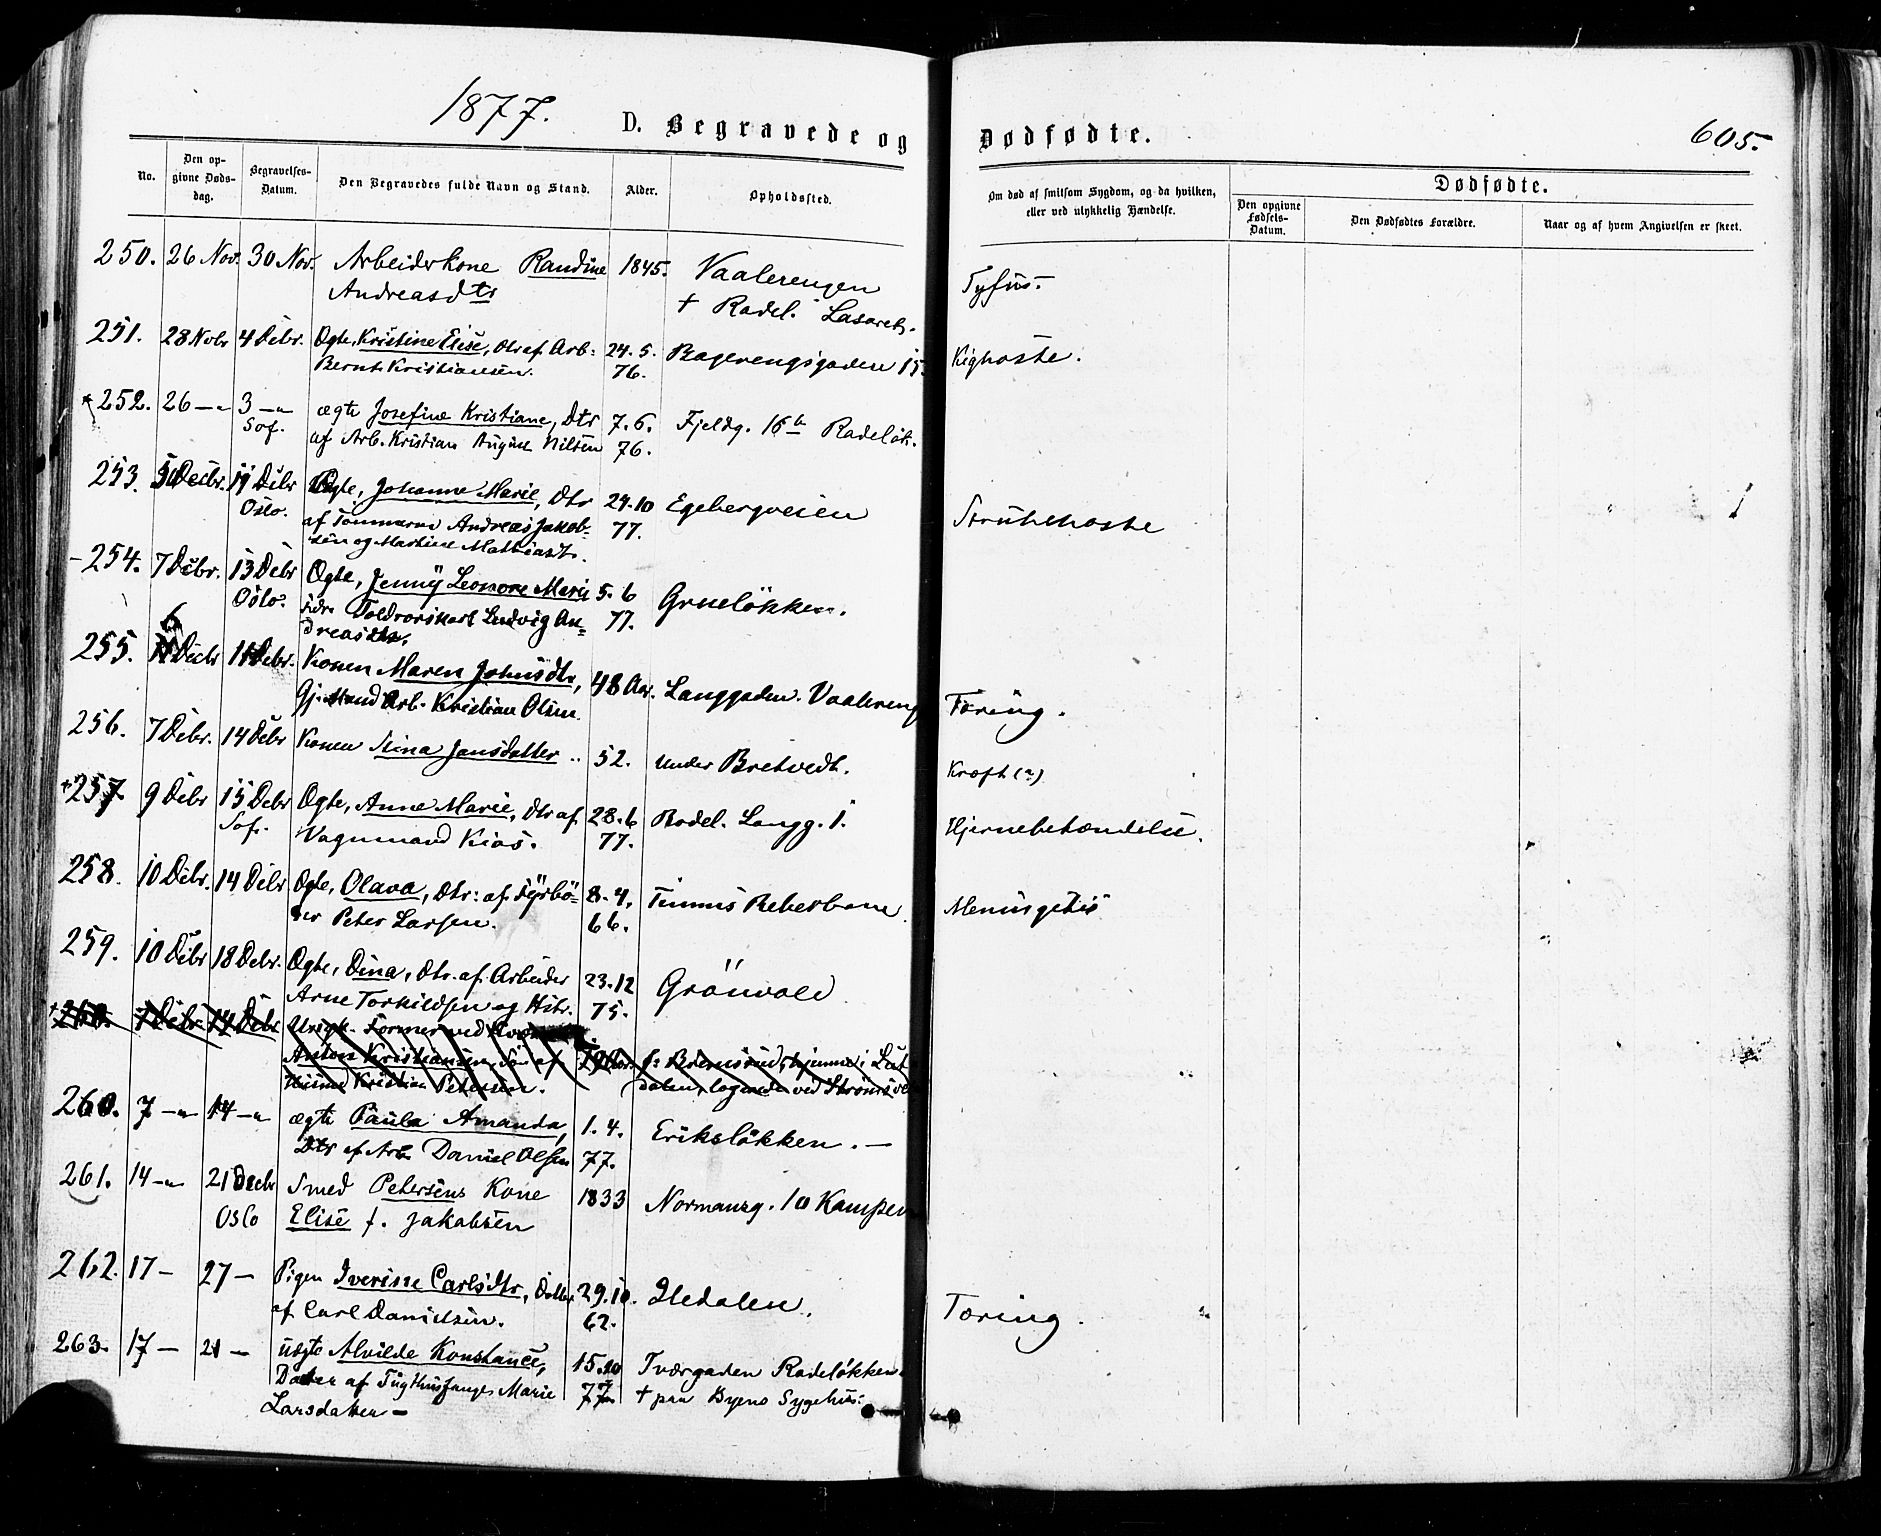 1877.
D. Begravede og
Dødfødte.
605.
No.
Den op-
givne Døds-
dag.
Begravelses-
Datum.
Den Begravedes fulde Navn og Stand.
Alder.
Opholdssted.
Om død af smitsom Sygdom, og da hvilken,
eller ved ulykkelig Hændelse.
Dødfødte.
Den opgivne
Fødsels-
Datum.
Den Dødfødtes Forældre.
Naar og af hvem Angivelsen er skeet.
250. 26 Nov. 30 Nov. Arbeiderkone Randine 1845. Vaalerengen Tyfus.
Andreasdtr † Rodel. Lasaret.
251. 28 Nobr 4 Debr. Ægte, Kristine Elise, Dtr af Arb: 24.5. Bagerengsgaden 15. Kighoste.
Bernt Kristiansen. 76.
252. 26 —" 3 —" ægte Josefine Kristiane, Dtr 7.6. Fjeldg. 16 b Rodeløk.
Sof. af Arb. Kristian August Nilsen 76.
253. Decbr. 11 Debr Ægte, Johanne Marie, Dtr 29.10 Egebergveien Strubehoste
Oslo. af Tømmerm Andreas Jakob- 77.
sen og Martine Mathiasdt.
254. 7 Debr. 13 Debr Ægte, Jenny Leonore Marie 5.6 Grueløkken.
Oslo. Ludvig An- 77.
255. 6 Decbr 11 Debr. Konen Maren Johnsdtr, 48 Aar. Langgaden. Vaalereng Tæring.
Gj. Mand Arb. Kristian Olsen.
256. 7 Debr. 14 Debr Konen Stina Jansdatter 52. under Bretvedt. Kræft (?)
257. 9 Debr 15 Debr Ægte, Anne Marie, Dtr af 28.6 Rodel. Langg. 1. Hjernebetændelse.
Sof. Vognmand Kiøs. 77.
258. 10 Debr. 14 Debr Ægte, Olava, Dtr. af Fyrbø- 8.4. Reberbane Meningetis
der Peter Larsen. 66.
259. 10 Debr 18 Debr. Ægte, Dina, Dtr. af Arbeider 23.12 Grönvold
Arne Torkildsen og Hstr. 75.
260. 7 Debr 14 Debr Former ved
Anton Kristiansen, Søn af
Kristian Petersen.
260. 7 —" 14 —" ægte Paula Amanda, 1.4. Eriksløkken. —
Dtr af Arb Daniel Olsen 77.
261. 14 —" 21 Decbr Smed Petersens Kone 1833 Normansg. 10 Kampen
Oslo Elise f. Jakobsen
262. 17 — 27 — Pigen Iverine Carlsdtr, Datter 29.10. Iledalen. Tæring.
af Carl Danielsen. 62.
263. 17 — 21 — uægte Alvilde Konstance, 15.10 Tværgaden Rodeløkken.
Datter af Tugthusfange Marie 77. † paa Byens Sygehus.
Larsdatter —